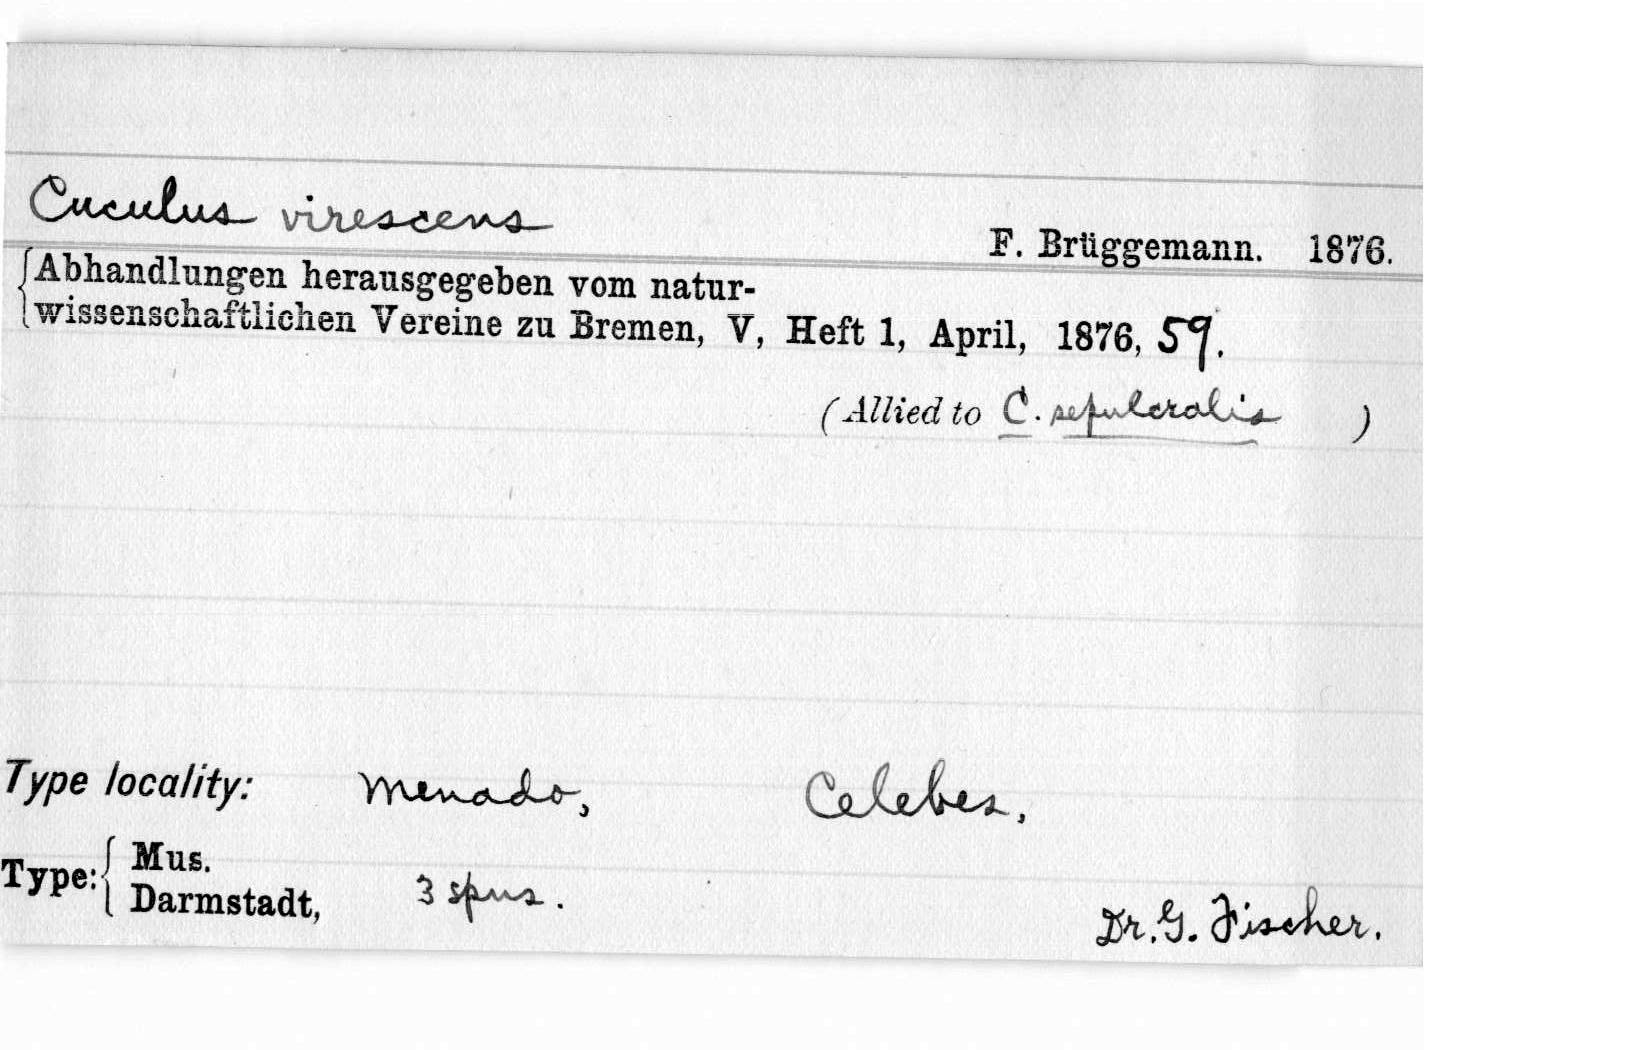 Cuculus virescens
F. Brüggemann. 1876.
Abhandlungen herausgegeben vom natur-
wissenschaftlichen Vereine zu Bremen, V, Heft 1, April, 1876, 59.
(Allied to C. sepulcralis )
Type locality: Menado, Celebes,
Type: Mus.
Darmstadt, 3 spns.
Dr. G. Fischer.